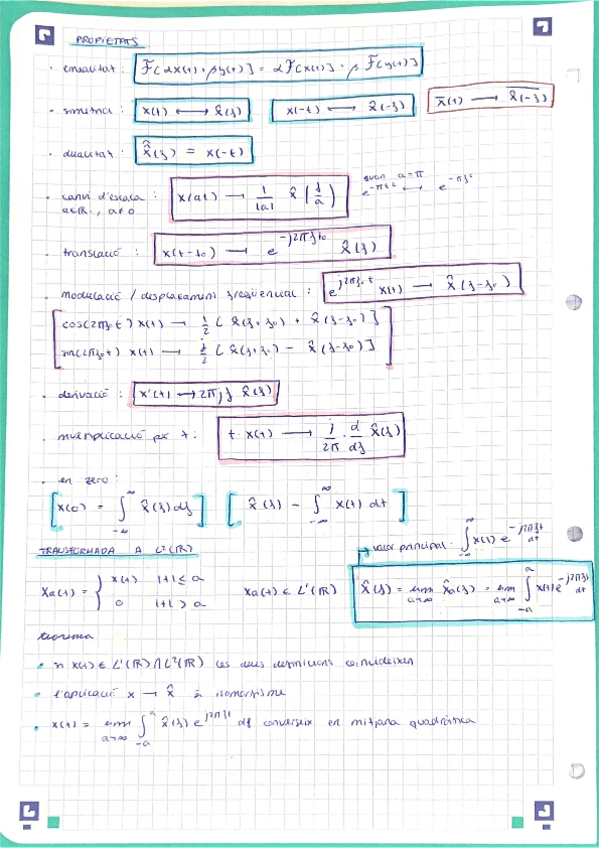 PROPIETATS
· linealitat : F[αx(t) + βy(t)] = αF[x(t)] + βF[y(t)]
· simetria : x(t) ⟷ x̂(ʒ) x(-t) ⟷ x̂(-ʒ) x̄(t) ⟶ \overline{x̂(-ʒ)}
· dualitat : \hat{x̂}(ʒ) = x(-t)
· canvi d'escala : x(at) → 1/|a| x̂(ʒ/a) quan a=π e^{-πt²} ⟷ e^{-πʒ²}
a∈ℝ, a≠0
· translació : x(t-t₀) → e^{-j2πʒt₀} x̂(ʒ)
· modulació / desplaçament freqüencial : e^{j2πʒ₀t} x(t) → x̂(ʒ-ʒ₀)
cos(2πʒ₀t) x(t) → 1/2 [x̂(ʒ+ʒ₀) + x̂(ʒ-ʒ₀)]
sin(2πʒ₀t) x(t) → j/2 [x̂(ʒ+ʒ₀) - x̂(ʒ-ʒ₀)]
· derivació : x'(t) → 2πjʒ x̂(ʒ)
· multiplicació per t : t · x(t) → j/2π · d/dʒ x̂(ʒ)
· en zero :
[x(0) = ∫_{-∞}^{∞} x̂(ʒ)dʒ] [x̂(ʒ) - ∫_{-∞}^{∞} x(t) dt]
TRANSFORMADA A L²(ℝ) → valor principal : ∫_{-∞}^{∞} x(t) e^{-j2πʒt} dt
Xa(t) = { x(t) |t| ≤ a
0 |t| > a
Xa(t) ∈ L'(ℝ) x̂(ʒ) = lim_{a→∞} x̂a(ʒ) = lim_{a→∞} ∫_{-a}^{a} x(t) e^{-j2πʒt} dt
teorema
• si x(t) ∈ L'(ℝ) ∩ L²(ℝ) les dues definicions coincideixen
• l'aplicació x → x̂ és isomorfisme
• x(t) = lim_{a→∞} ∫_{-a}^{a} x̂(ʒ) e^{j2πʒt} dʒ convergeix en mitjana quadràtica